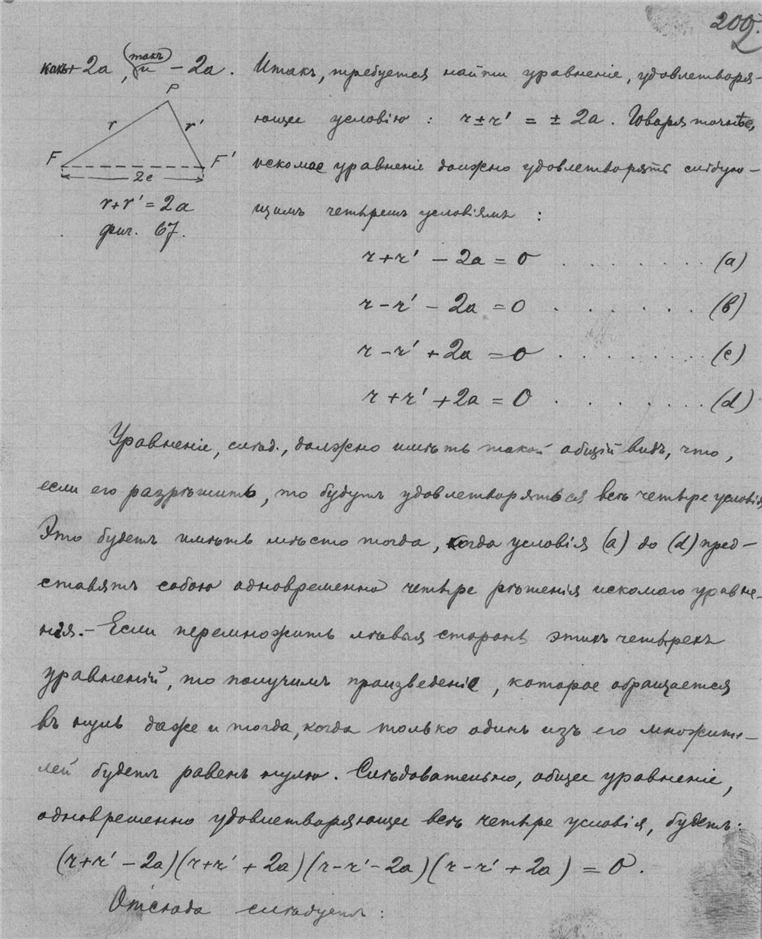 200.
какъ + 2a, (такъ и) − 2a. Итакъ, требуется найти уравненіе, удовлетворя-
P
r r'
ющее условію: r ± r' = ± 2a. Говоря точнѣе,
F F'
2c
искомое уравненіе должно удовлетворять слѣдую-
r + r' = 2a
щимъ четыремъ условіямъ:
фиг. 67.
r + r' − 2a = 0 . . . . . . . (a)
r − r' − 2a = 0 . . . . . . . (b)
r − r' + 2a = 0 . . . . . . . (c)
r + r' + 2a = 0 . . . . . . . (d)
Уравненіе, слѣд., должно имѣть такой общій видъ, что,
если его разрѣшить, то будутъ удовлетворяться всѣ четыре условія
Это будетъ имѣть мѣсто тогда, когда условія (a) до (d) пред-
ставятъ собою одновременно четыре рѣшенія искомаго уравне-
нія. – Если перемножить лѣвыя стороны этихъ четырехъ
уравненій, то получимъ произведеніе, которое обращается
въ нуль даже и тогда, когда только одинъ изъ его множите-
лей будетъ равенъ нулю. Слѣдовательно, общее уравненіе,
одновременно удовлетворяющее всѣ четыре условія, будетъ:
(r + r' − 2a)(r + r' + 2a)(r − r' − 2a)(r − r' + 2a) = 0.
Отсюда слѣдуетъ: